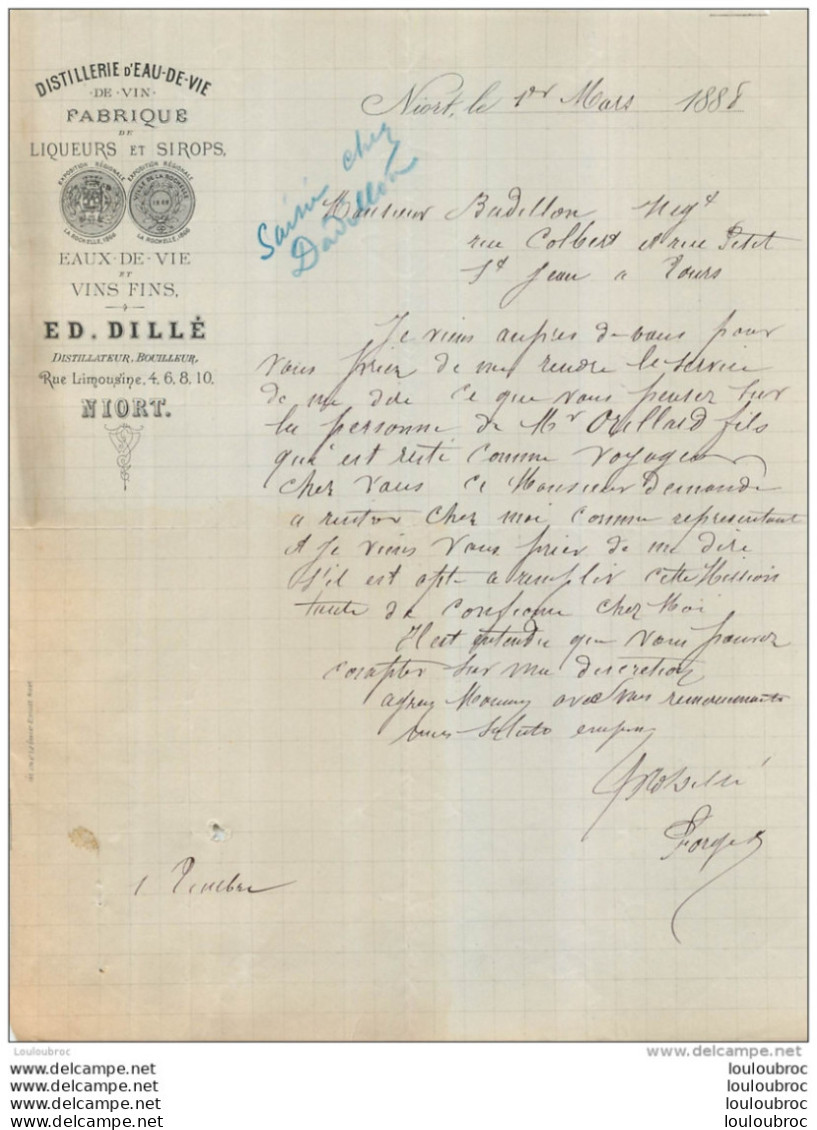 DISTILLERIE D'EAU-DE-VIE
- DE - VIN -
FABRIQUE
DE
LIQUEURS ET SIROPS,
EXPOSITION RÉGIONALE
LA ROCHELLE, 1866
EXPOSITION RÉGIONALE
VILLE DE LA ROCHELLE
1866
LA ROCHELLE, 1866
EAUX-DE-VIE
ET
VINS FINS,
ED. DILLÉ
DISTILLATEUR, BOUILLEUR,
Rue Limousine, 4, 6, 8, 10,
NIORT.
Niort, le 1er Mars 1888
chez
Monsieur Badillon Negt
rue Colbert et rue Petit
St Jean a Tours
Je viens aupres de vous pour
vous prier de me rendre le service
de me dire ce que vous penser sur
la personne de Mr Orillard fils
qui est resté comme voyageur
chez vous ce Monsieur demande
a rentrer chez moi comme representant
et Je viens vous prier de me dire
s'il est apte a remplir cette Mission
toute de confience chez Moi
Il est entendu que vous pouvez
compter sur ma discretion
agreez avec mes remerciements
mes saluts
1 Timbre
Louloubroc
www.delcampe.net
louloubroc
louloubroc
louloubroc
louloubroc
louloubroc
louloubroc
louloubroc
louloubroc